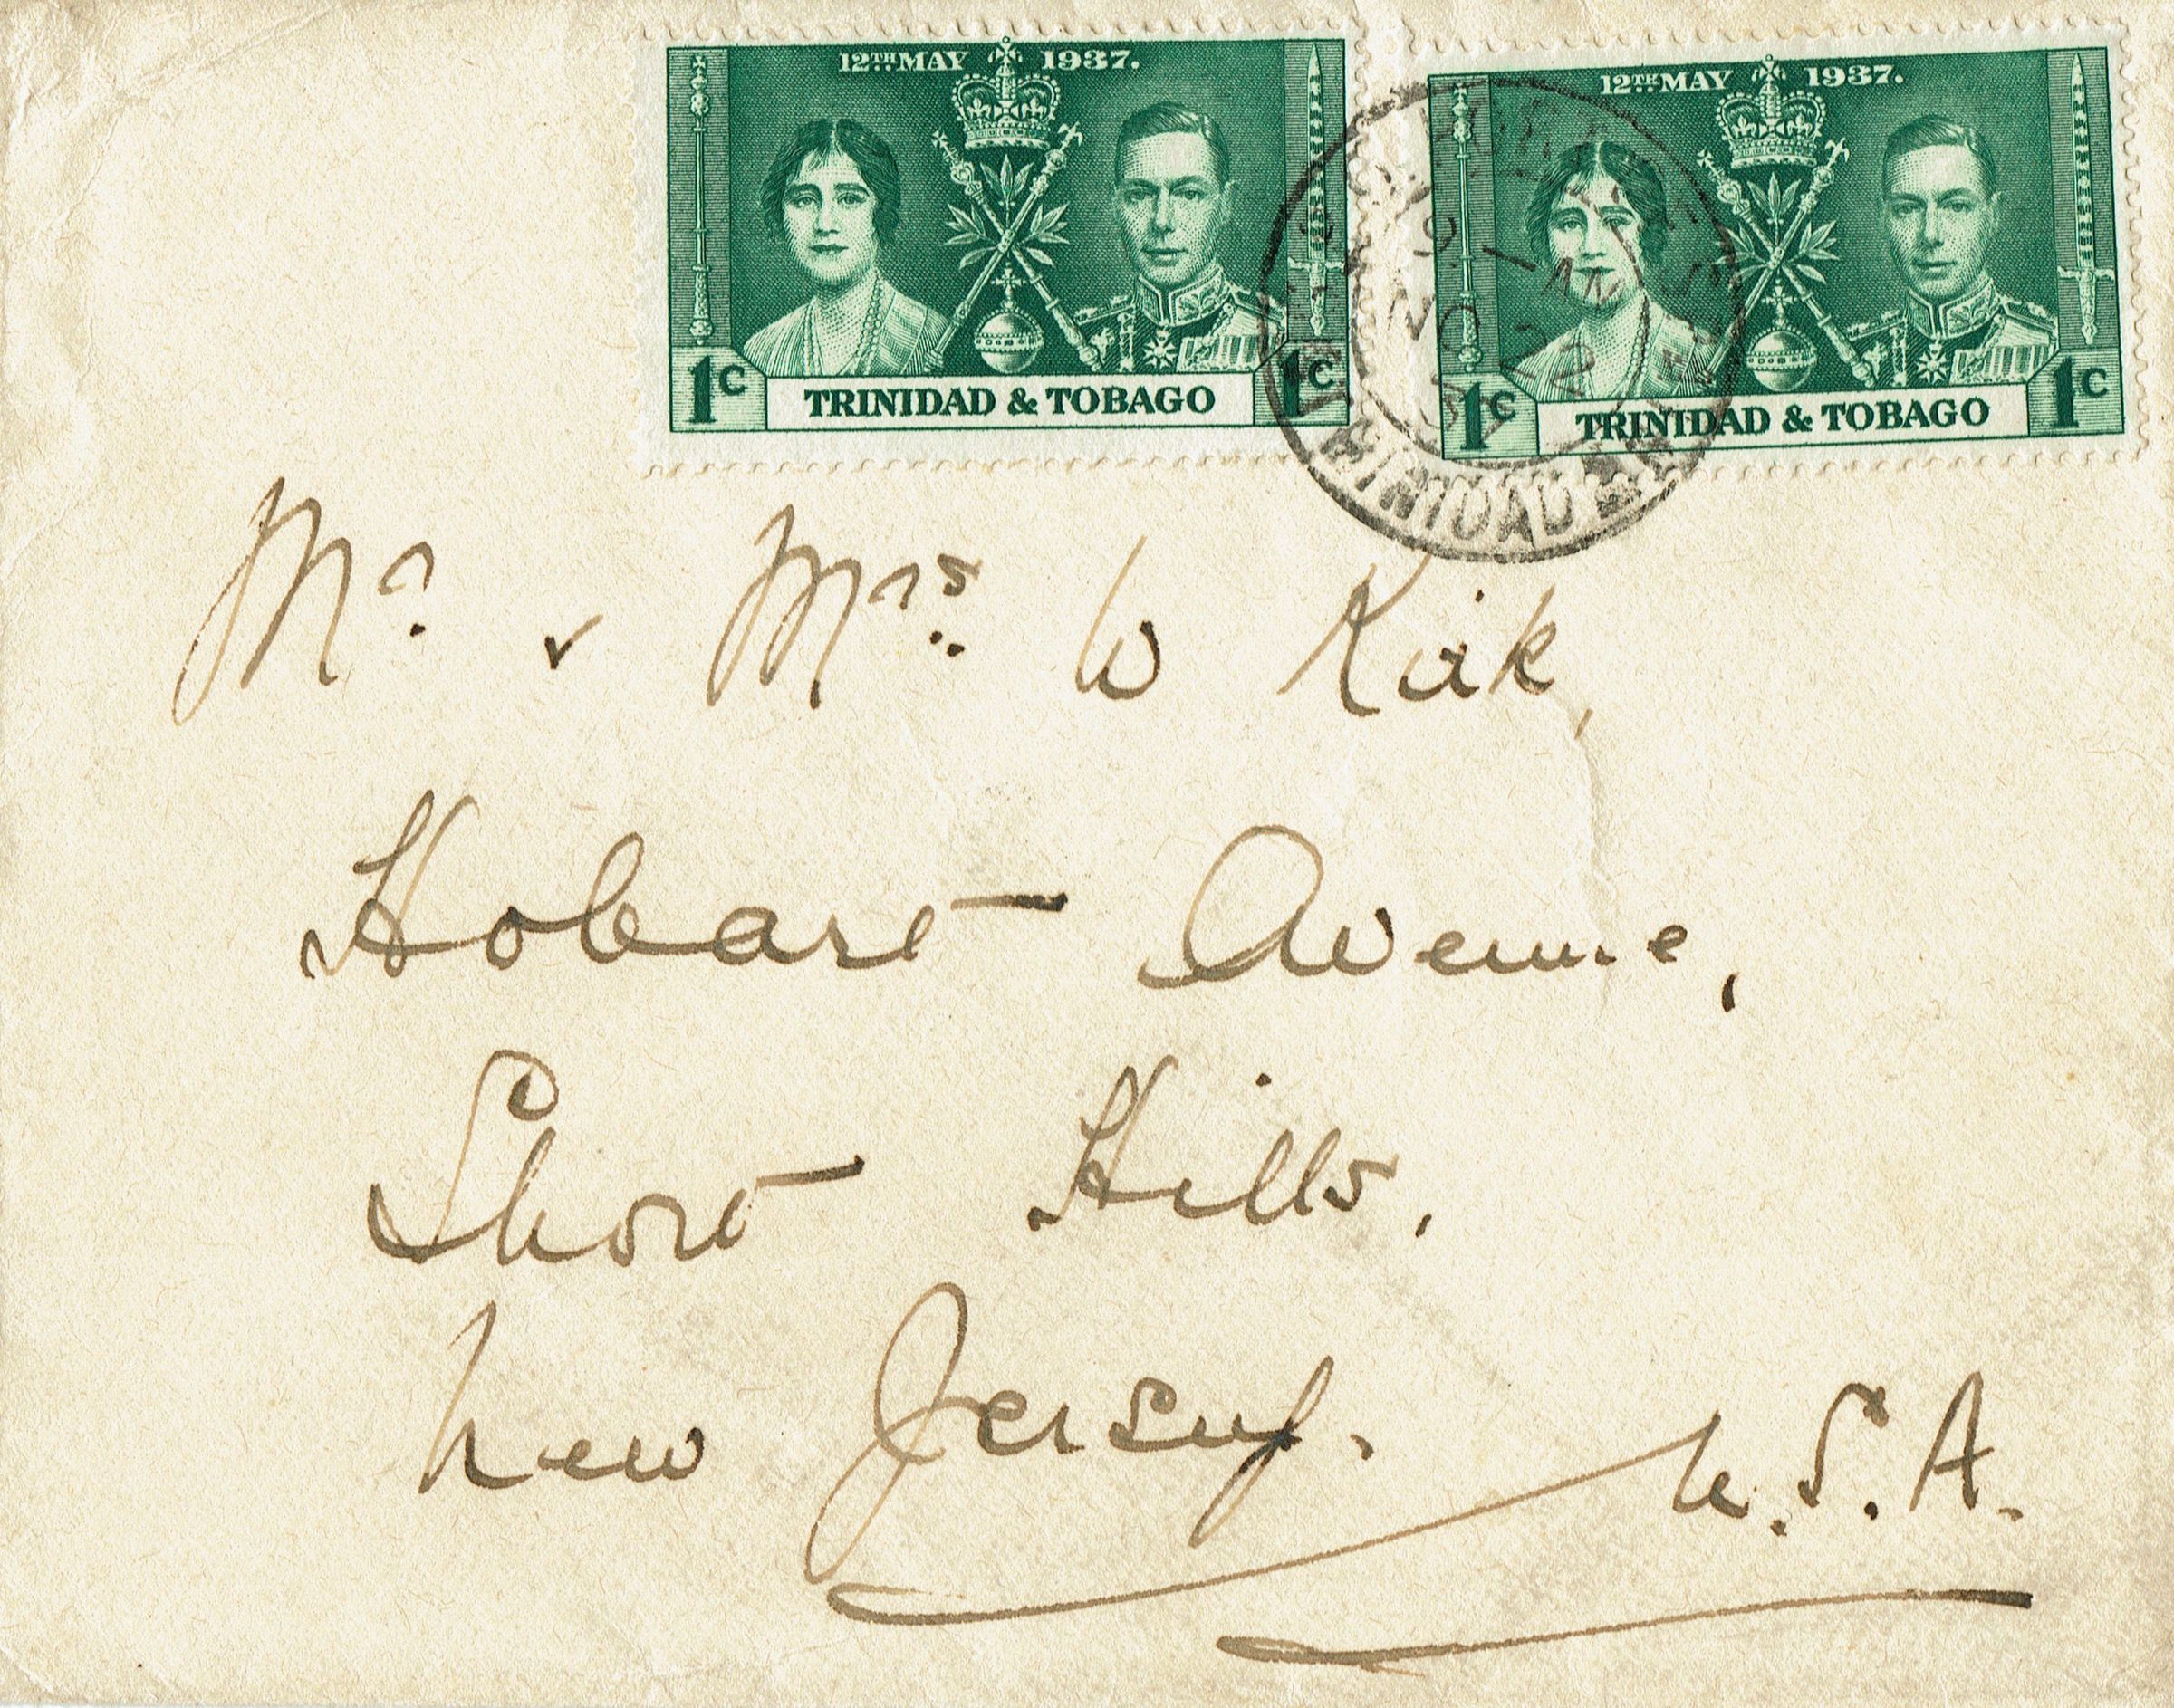 12TH MAY 1937.
1c TRINIDAD & TOBAGO 1c
12TH MAY 1937.
1c TRINIDAD & TOBAGO 1c
NO 22
TRINIDAD
Mr. & Mrs. W Kirk,
Hobart Avenue,
Short Hills,
New Jersey.
U.S.A.